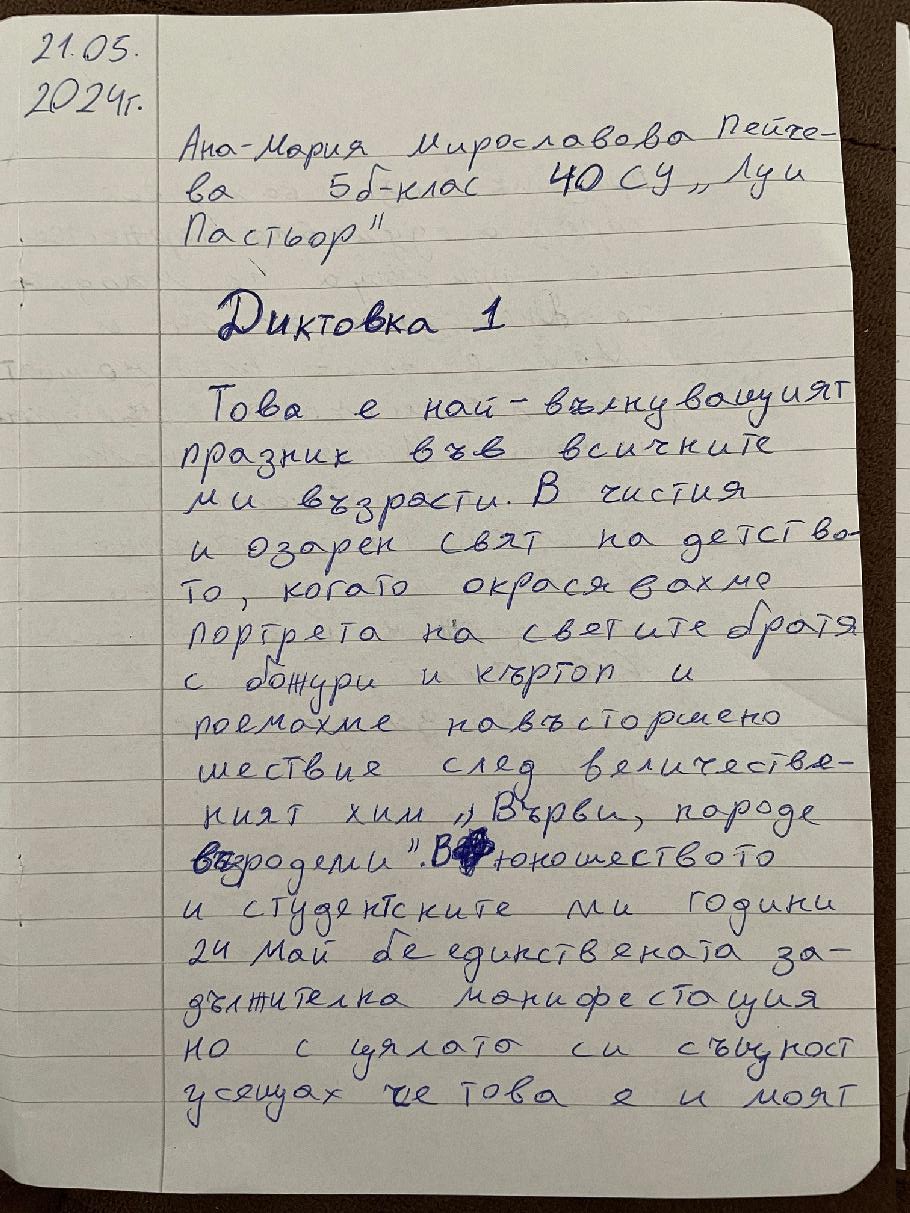 21.05.
2024г.
Ана-Мария Мирославова Пейче-
ва 5б-клас 40 СУ „Луи
Пастьор"
Диктовка 1
Това е най-вълнуващият
празник във всичките
ми възрасти. В чистия
и озарен свят на детство-
то, когато окрасявахме
портрета на светите братя
с божури и къртоп и
поемахме навъсторшено
шествие след величестве-
ният хим „Върви, народе
възродеми". В юношеството
и студентските ми години
24 Май бе единствената за-
дължителна манифестация
но с цялото си същност
усещах че това е и моят